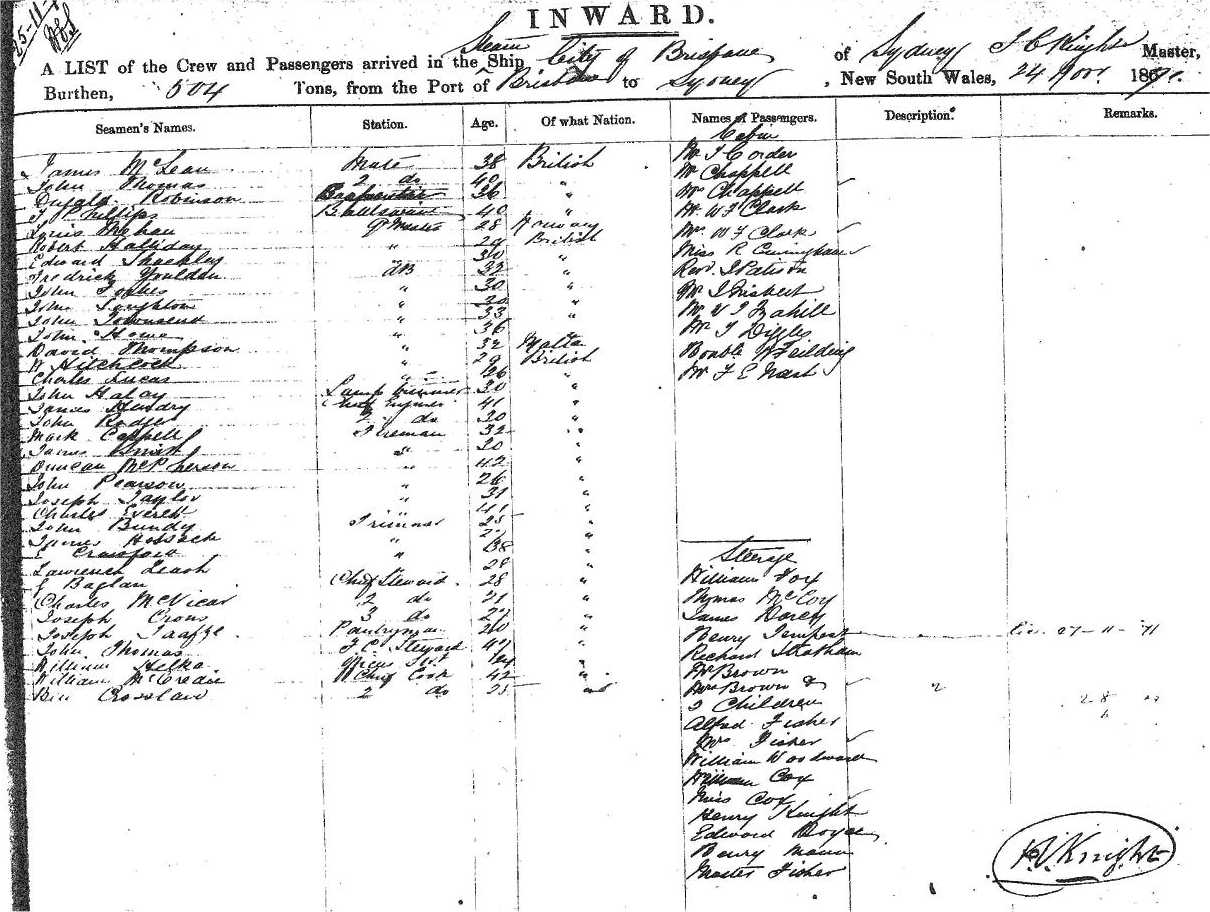 25-11-
INWARD.
A LIST of the Crew and Passengers arrived in the Ship Steam City of Brisbane of Sydney J C Knight Master,
Burthen, 504 Tons, from the Port of Brisbane to Sydney, New South Wales, 24 Nov. 187
Seamen's Names. Station. Age. Of what Nation. Names of Passengers. Description. Remarks.
Cabin
James McLean Mate 38 British
John Thomas 2 do 40 "
Dugald Robinson 36 "
J Phillips 40 "
Louis Mehan 28 Norway
Robert Halliday " 29 British
Edward Sheckley 30 "
Fredrick Youlden AB 32 "
John Forbes " 30 "
John Loughton " 20 "
John Townsend " 33 "
John Howe " 36
David Thompson " 32 Malta
H Hitchcock " 29 British
Charles Lucas " 26 "
John Haley Lamp trimmer 30 "
James Hendry Chief Engineer 41 "
John Rodger 2 do 30 "
Mark Cappell Fireman 32 "
James " 30 "
Duncan McPherson " 42 "
John Pearson " 26 "
Joseph Taylor " 31 "
Charles Everett " 41 "
John Bundy Trimmer 25 "
James Hossack " "
E Crawford " 38 "
Lawrence Leash 28 "
E Baglan Chief Steward 28 "
Charles McVicar 2 do 21 "
Joseph Crons 3 do 22 "
Joseph Taaffe Pantryman 20 "
John Thomas F.C. Steward "
William Helka "
William McCredie Chief Cook 42 "
Ben Crossland 2 do 25
Mr J Corder
Mr Chappell
Mrs Chappell
Mr W F Clark
Mrs W F Clark
Miss R Cuningham
Revd J Patison
Mr J Frisbert
Mr V J Zahill
Mr J Diggles
Honble W Feilding
Mr F E Nash
Steerage
William Fox
Thomas McCoy
James Darcy
Henry Tempest 27-11-71
Richard Stratham
Mr Brown
Mrs Brown & 2
2 Children
Alfred Fisher
Mrs Fisher
William Woodward
William Cox
Miss Cox
Henry Knight
Edward Boyce
Henry Mann
Master Fisher
Knight